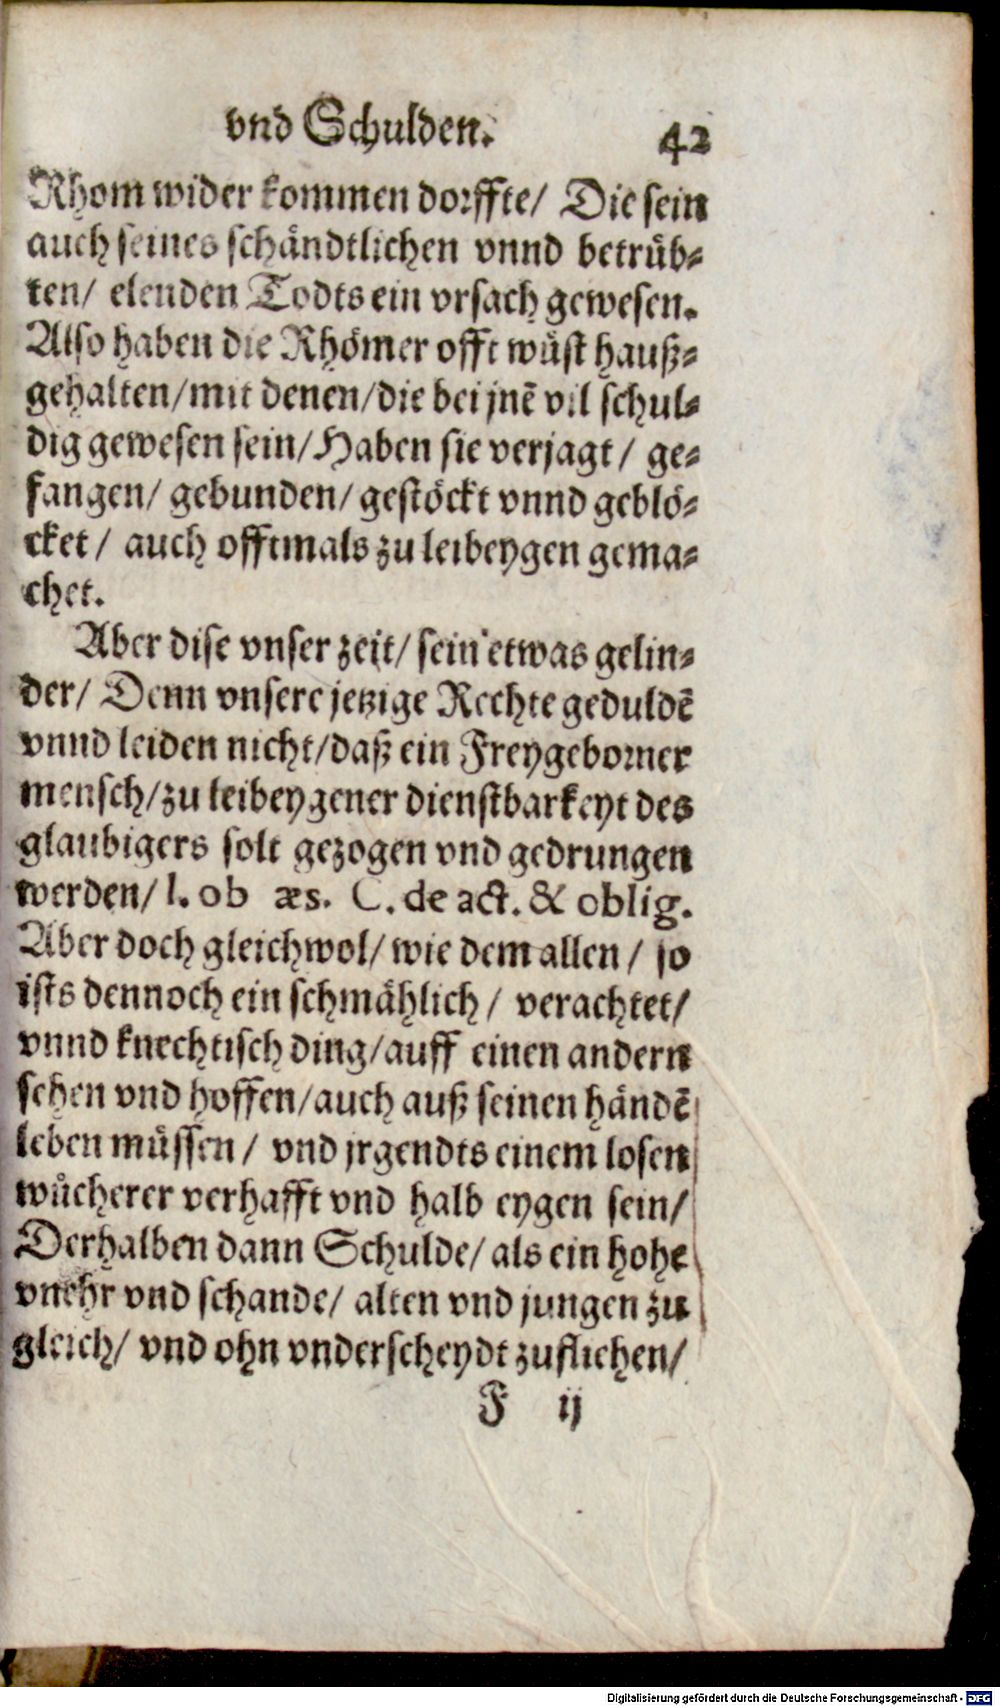 vnd Schulden. 42
Rhom wider kommen dorffte/ Die sein
auch seines schändtlichen vnnd betrüb⸗
ten/ elenden Todts ein vrsach gewesen.
Also haben die Rhömer offt wüst hauß⸗
gehalten/mit denen/die bei jnē vil schul⸗
dig gewesen sein/Haben sie verjagt/ ge⸗
fangen/ gebunden/ gestöckt vnnd geblö⸗
cket/ auch offtmals zu leibeygen gema⸗
chet.
Aber dise vnser zeit/ sein etwas gelin⸗
der/ Denn vnsere jetzige Rechte geduldē
vnnd leiden nicht/daß ein Freygeborner
mensch/zu leibeygener dienstbarkeyt des
glaubigers solt gezogen vnd gedrungen
werden/ l. ob æs. C. de act. & oblig.
Aber doch gleichwol/ wie dem allen/ so
ists dennoch ein schmählich/ verachtet/
vnnd knechtisch ding/auff einen andern
sehen vnd hoffen/auch auß seinen händē
leben müssen/ vnd jrgendts einem losen
wůcherer verhafft vnd halb eygen sein/
Derhalben dann Schulde/ als ein hohe
vnehr vnd schande/ alten vnd jungen zu
gleich/ vnd ohn vnderscheydt zufliehen/
F ij
Digitalisierung gefördert durch die Deutsche Forschungsgemeinschaft - DFG